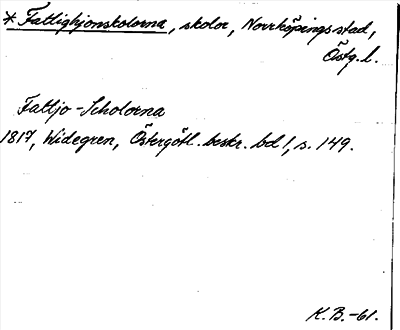 * Fattighjonskolorna, skolor, Norrköpings stad,
Östg. l.
Fattjo-Scholorna
1817, Widegren, Östergötl. beskr. bd 1, s. 149.
K.B.-61.